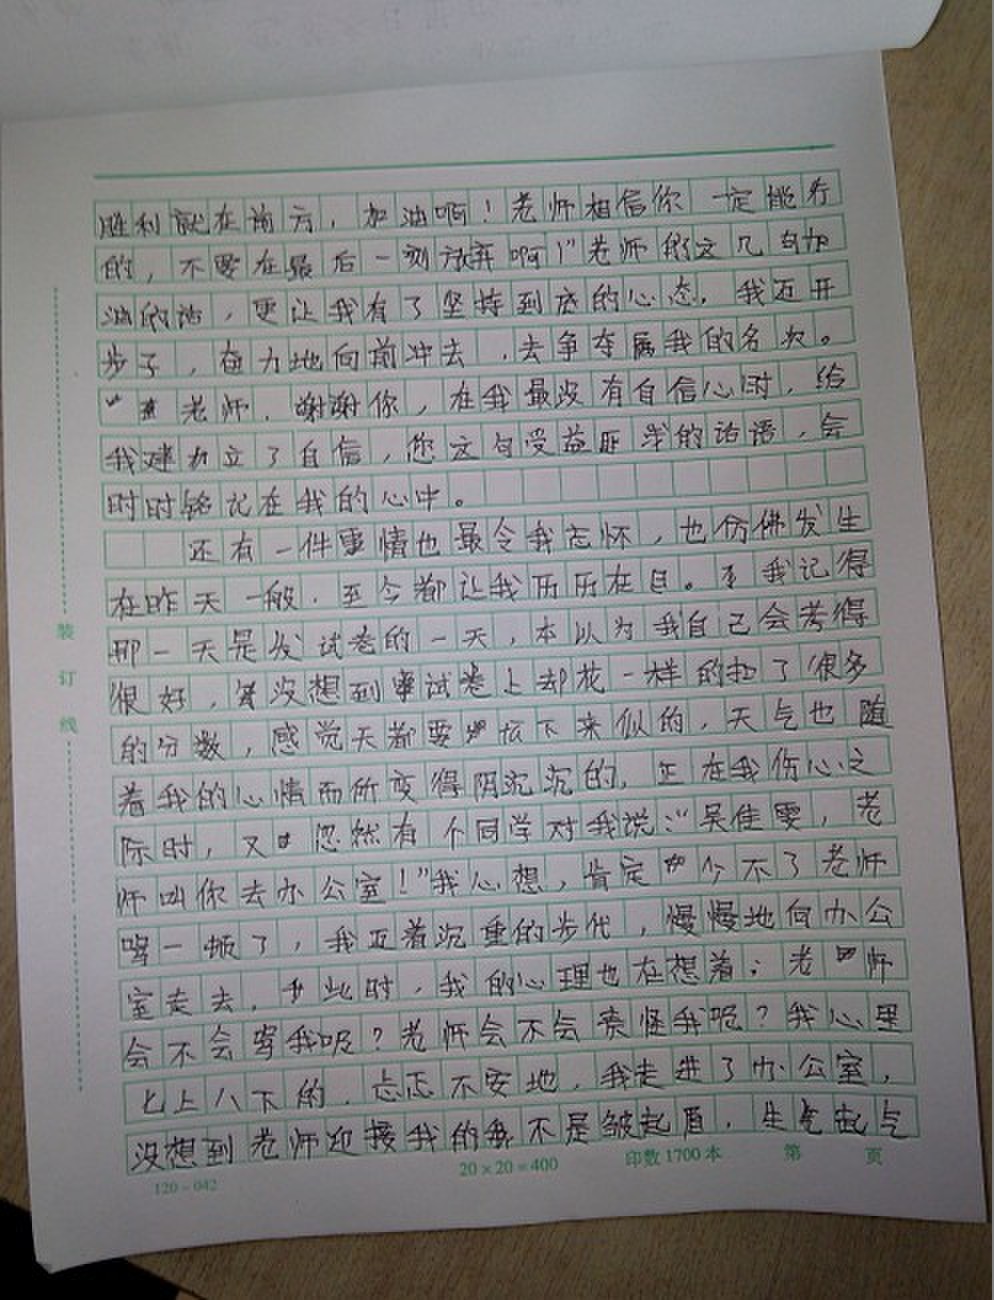 胜利就在前方，加油啊！老师相信你一定能行
的，不要在最后一刻放弃啊！”老师的这几句加
油的话，更让我有了坚持到底的心态，我迈开
步子，奋力地向前冲去，去争夺属我的名次。
“老师，谢谢你，在我最没有自信心时，给
我建立了自信，您这句受益匪浅的话语，会
时时铭记在我的心中。
还有一件事情也最令我忘怀，也仿佛发生
在昨天一般，至今都让我历历在目。我记得
那一天是发试卷的一天，本以为我自己会考得
很好，没想到试卷上却花一样的扣了很多
的分数，感觉天都要坛下来似的，天气也随
着我的心情而所变得阴沉沉的，正在我伤心之
际时，又忽然有个同学对我说：“吴佳雯，老
师叫你去办公室！”我心想，肯定今不了老师
骂一顿了，我迈着沉重的步代，慢慢地向办公
室走去，此时，我的心理也在想着：老师
会不会骂我呢？老师会不会责怪我呢？我心里
七上八下的，忐忑不安地，我走进了办公室，
没想到老师迎接我的不是皱起眉，生气起气
装
订
线
120－042
20×20＝400
印数1700本
第 页